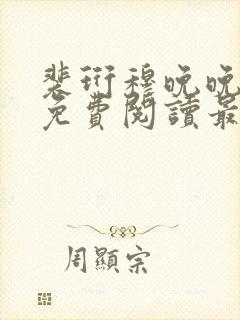 裴衍穆晚晚
免費閱讀最
周顯宗